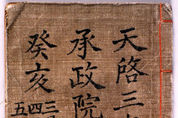 天啓三
承政院
癸亥
三
四
五